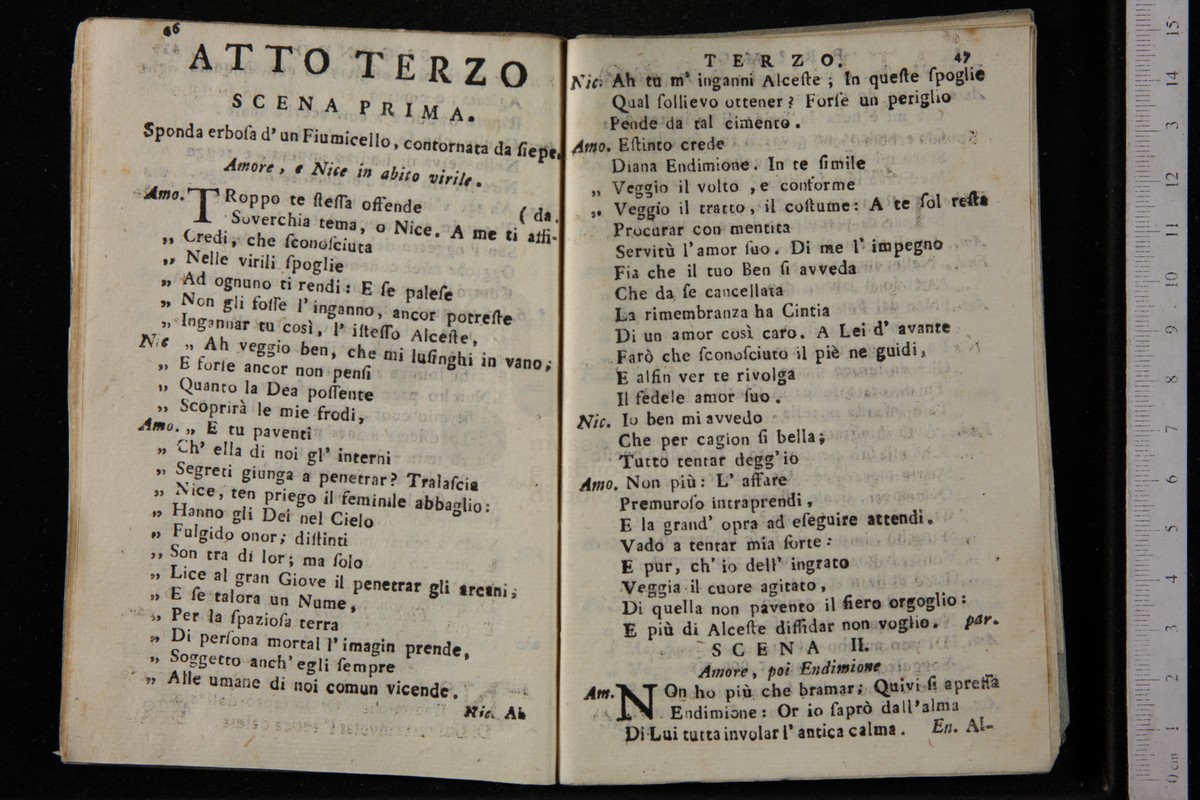 46
ATTO TERZO
SCENA PRIMA.
Sponda erbosa d' un Fiumicello, contornata da siepe.
Amore, e Nice in abito virile.
Amo. TRoppo te stessa offende
Soverchia tema, o Nice. A me ti affi- (da.
„ Credi, che sconosciuta
„ Nelle virili spoglie
„ Ad ognuno ti rendi: E se palese
„ Non gli fosse l' inganno, ancor potreste
„ Ingannar tu così, l' istesso Alceste,
Nic „ Ah veggio ben, che mi lusinghi in vano;
„ E forse ancor non pensi
„ Quanto la Dea possente
„ Scoprirà le mie frodi,
Amo. „ E tu paventi
„ Ch' ella di noi gl' interni
„ Segreti giunga a penetrar? Tralascia
„ Nice, ten priego il feminile abbaglio:
„ Hanno gli Dei nel Cielo
„ Fulgido onor; distinti
„ Son tra di lor; ma solo
„ Lice al gran Giove il penetrar gli arcani;
„ E se talora un Nume,
„ Per la spaziosa terra
„ Di persona mortal l' imagin prende,
„ Soggetto anch' egli sempre
„ Alle umane di noi comun vicende.
Nic. Ah
TERZO. 47
Nic. Ah tu m' inganni Alceste; In queste spoglie
Qual sollievo ottener? Forse un periglio
Pende da tal cimento.
Amo. Estinto crede
Diana Endimione. In te simile
„ Veggio il volto, e conforme
„ Veggio il tratto, il costume: A te sol resta
Procurar con mentita
Servitù l' amor suo. Di me l' impegno
Fia che il tuo Ben si avveda
Che da se cancellata
La rimembranza ha Cintia
Di un amor così caro. A Lei d' avante
Farò che sconosciuto il piè ne guidi,
E alfin ver te rivolga
Il fedele amor suo.
Nic. Io ben mi avvedo
Che per cagion sì bella;
Tutto tentar degg' io
Amo. Non più: L' affare
Premuroso intraprendi,
E la grand' opra ad eseguire attendi.
Vado a tentar mia sorte:
E pur, ch' io dell' ingrato
Veggia il cuore agitato,
Di quella non pavento il fiero orgoglio:
E più di Alceste diffidar non voglio. par.
SCENA II.
Amore, poi Endimione
Am. NOn ho più che bramar; Quivi si apressa
Endimione: Or io saprò dall' alma
Di Lui tutta involar l' antica calma. En. Al-
15
14
13
12
11
10
9
8
7
6
5
4
3
2
1
0 cm